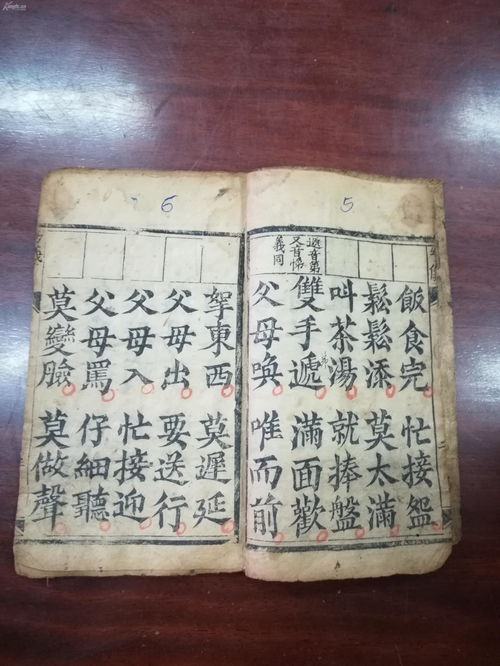 5
遞音第
又音悌
義同
飯食完 忙接盌
鬆鬆添 莫太滿
叫茶湯 就捧盤
雙手遞 滿面歡
父母喚 唯而前
6
拏東西 莫遲延
父母出 要送行
父母入 忙接迎
父母罵 仔細聽
莫變臉 莫做聲